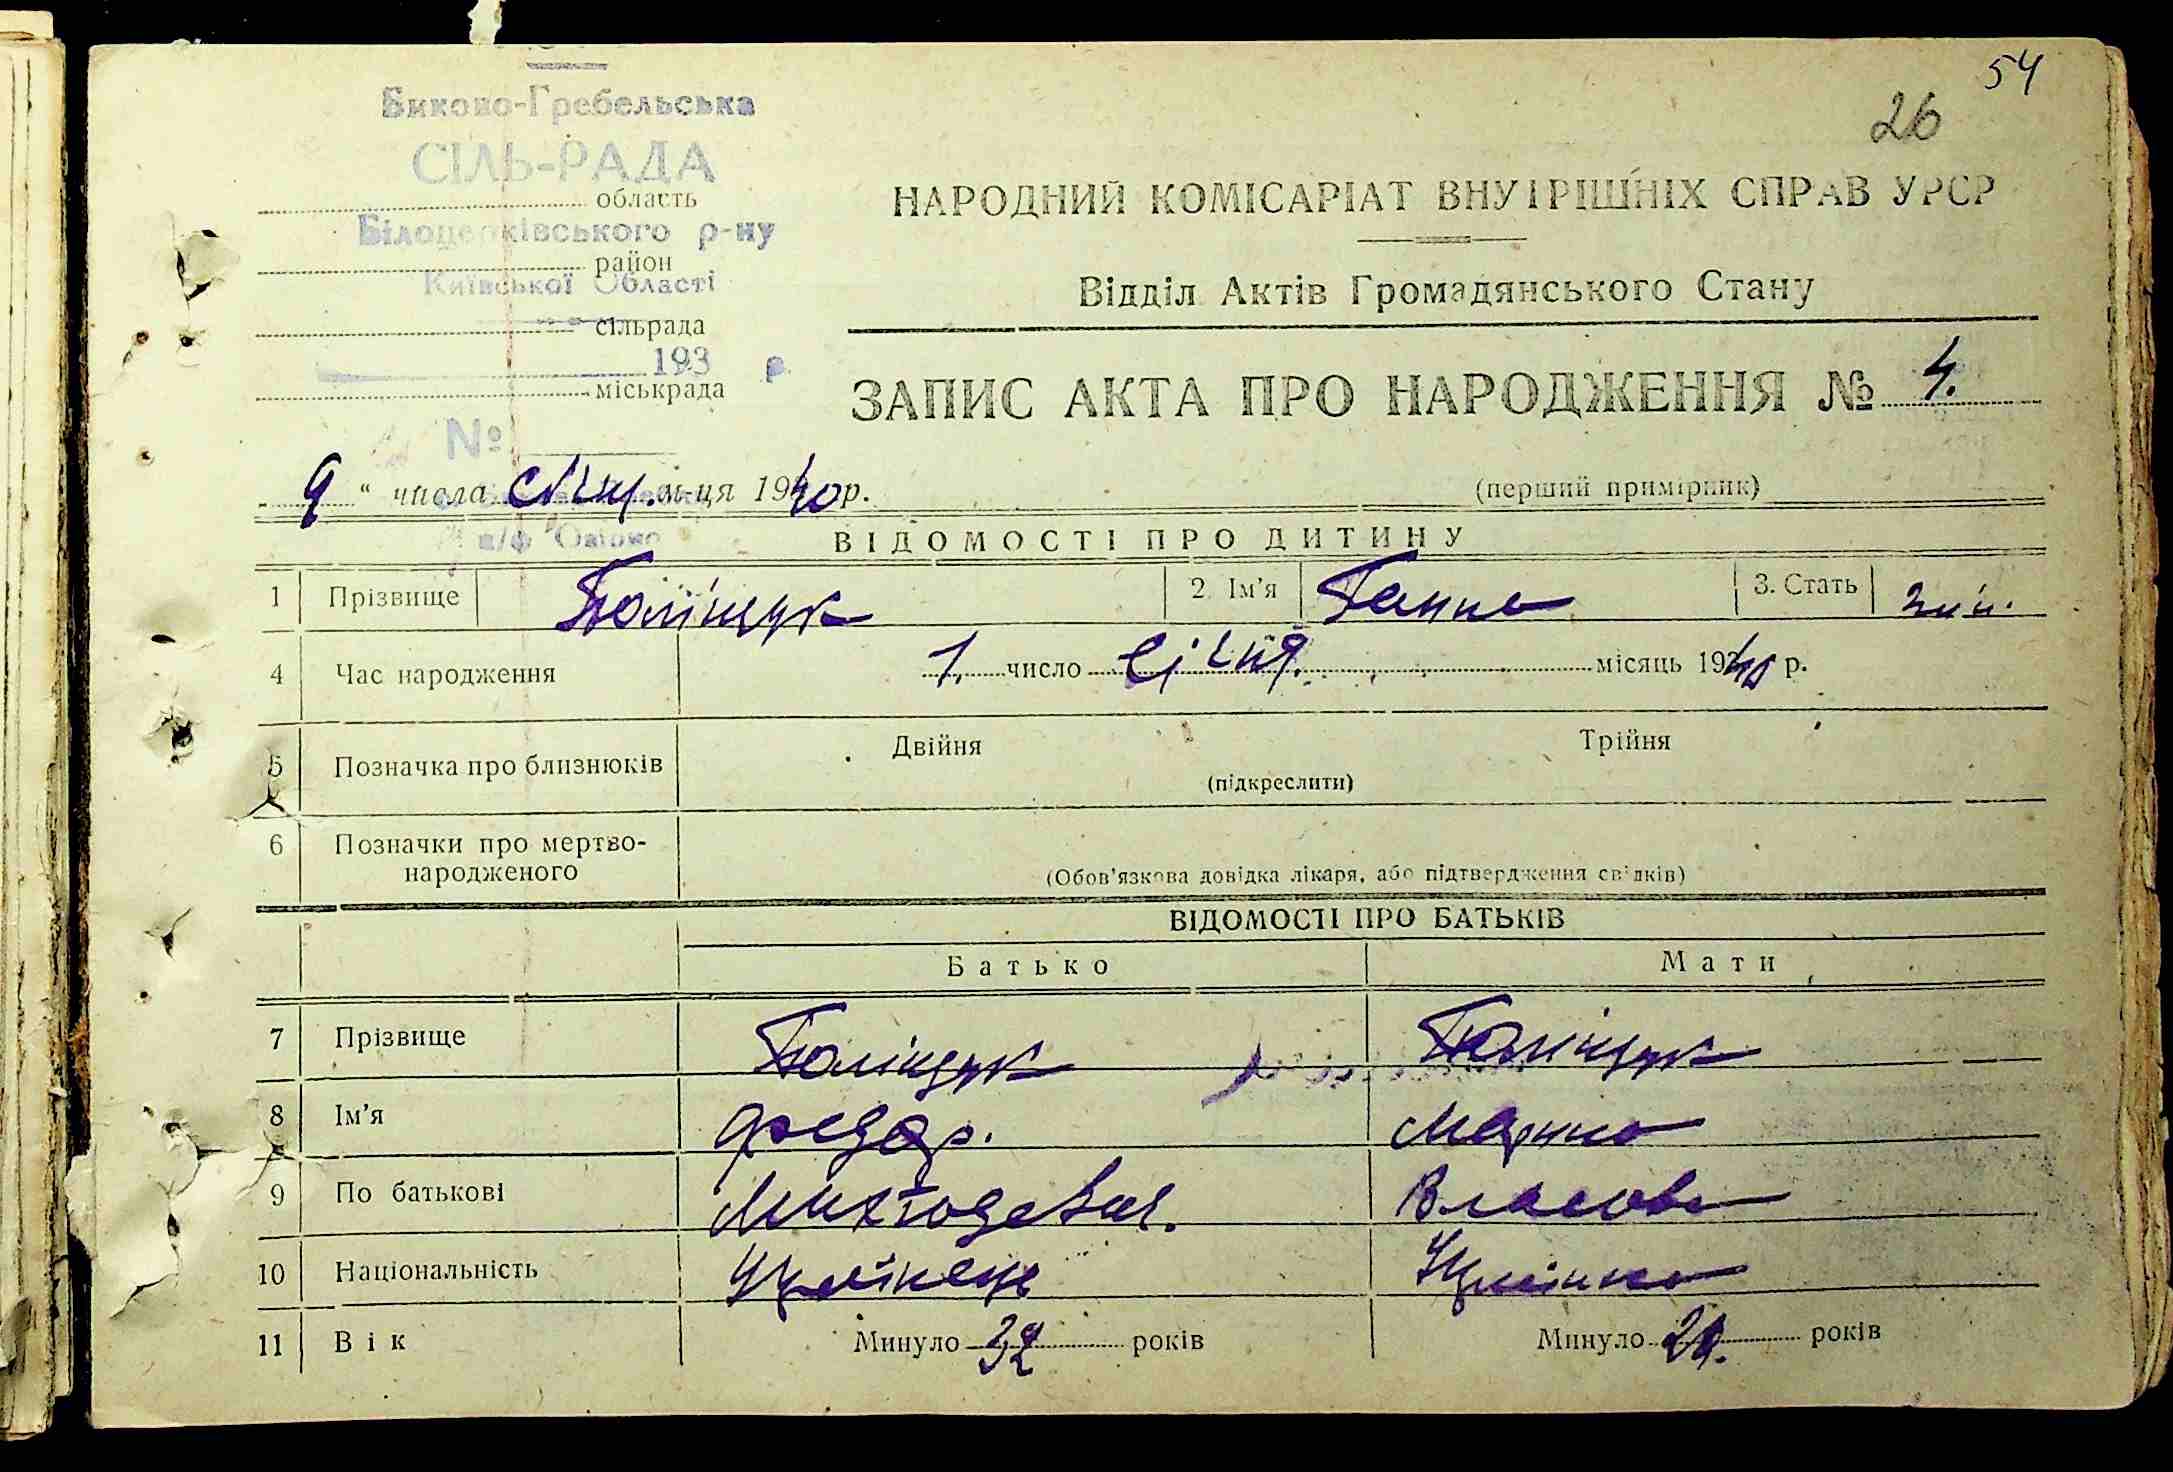 54
26
Биково-Гребельська
СІЛЬ-РАДА
область
Білоцерківського р-ну
район
Київської Області
сільрада
193 р.
міськрада
№
НАРОДНИЙ КОМІСАРІАТ ВНУТРІШНІХ СПРАВ УРСР
Відділ Актів Громадянського Стану
ЗАПИС АКТА ПРО НАРОДЖЕННЯ № 4.
9 " числа січн. м-ця 1940 р.
(перший примірник)
ВІДОМОСТІ ПРО ДИТИНУ
1 Прізвище Поліщук 2. Ім'я Ганна 3. Стать жін.
4 Час народження 1. число січня. місяць 1940 р.
5 Позначка про близнюків Двійня Трійня
(підкреслити)
6 Позначки про мертво-
народженого
(Обов'язкова довідка лікаря, або підтвердження свідків)
ВІДОМОСТІ ПРО БАТЬКІВ
Батько Мати
7 Прізвище Поліщук Поліщук
8 Ім'я Федор. Марина
9 По батькові Власовна
10 Національність Українець Українка
11 Вік Минуло 32 років Минуло років